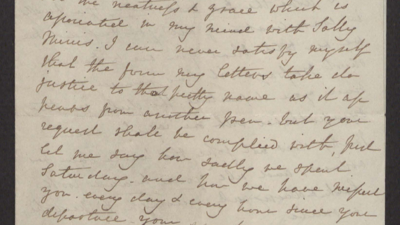 the neatness & grace which is
associated in my mind with Sally
Minis. I can never satisfy myself
that the form my letters take do
justice to that pretty name as it ap
pears from another pen. but your
request shall be complied with, just
let me say how sadly we spent
Saturday. and how we have missed
you. every day & every hour since your
departure. your